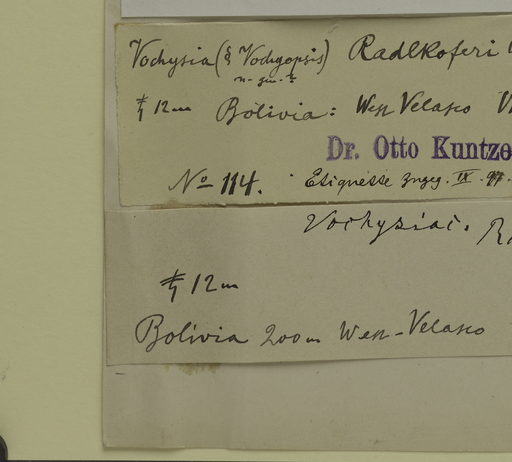 Vochysia (§ Vochyopsis) Radlkoferi
n. gen. ?
12m Bolivia: West Velasco
Dr. Otto Kuntze
No 114. Etiquette IX
Vochysiac.
12m
Bolivia 200m West-Velasco